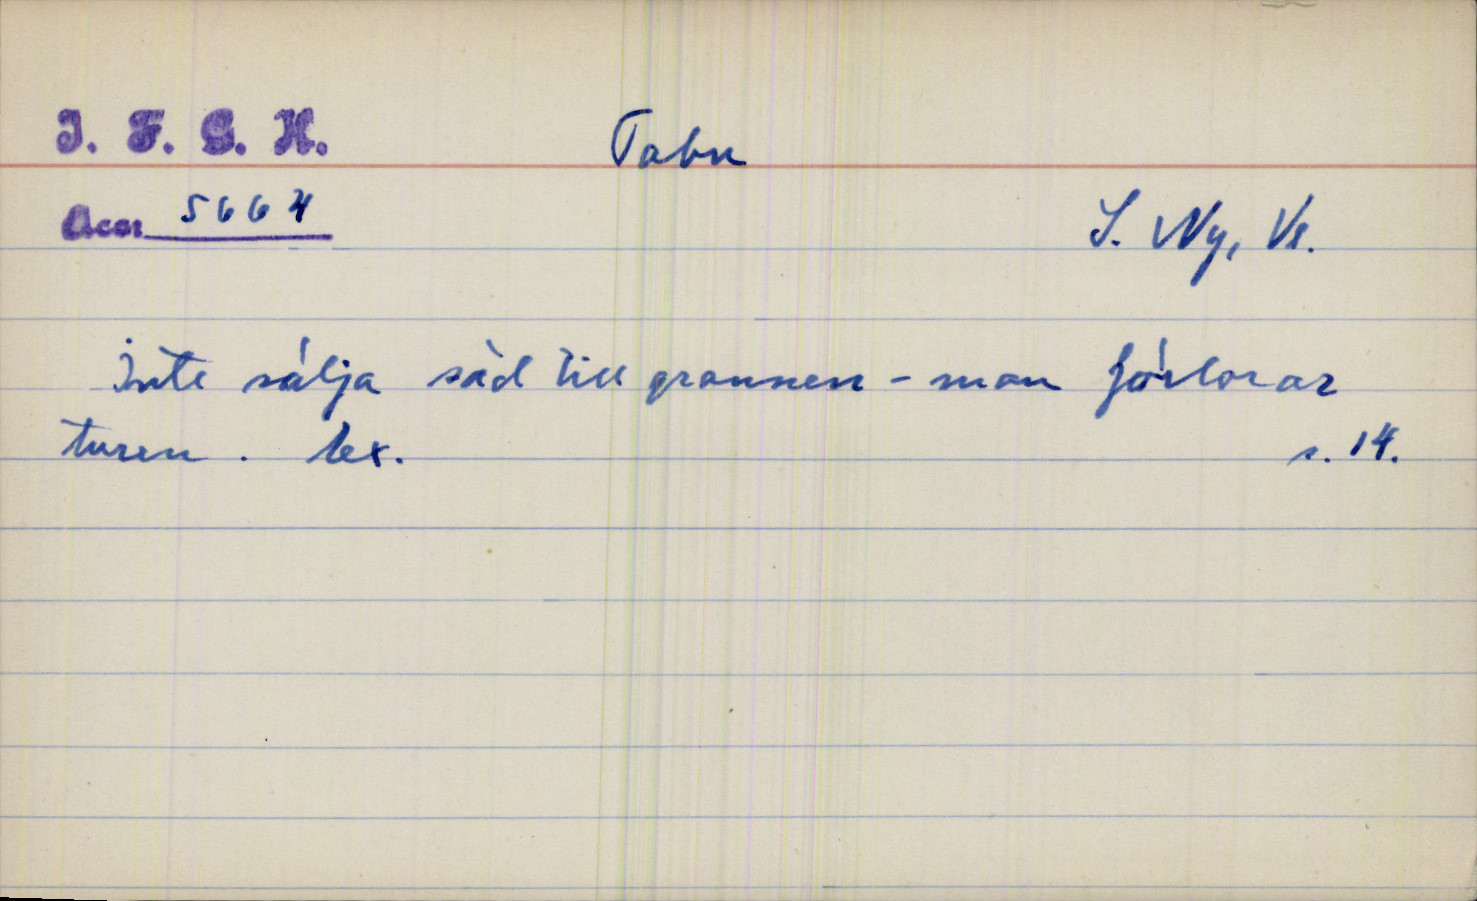 I. F. G. H.
Tabu
Acc. 5664
S. Ny, Vs.
Inte sälja säd till grannen - man förlorar
turen. lex.
s. 14.